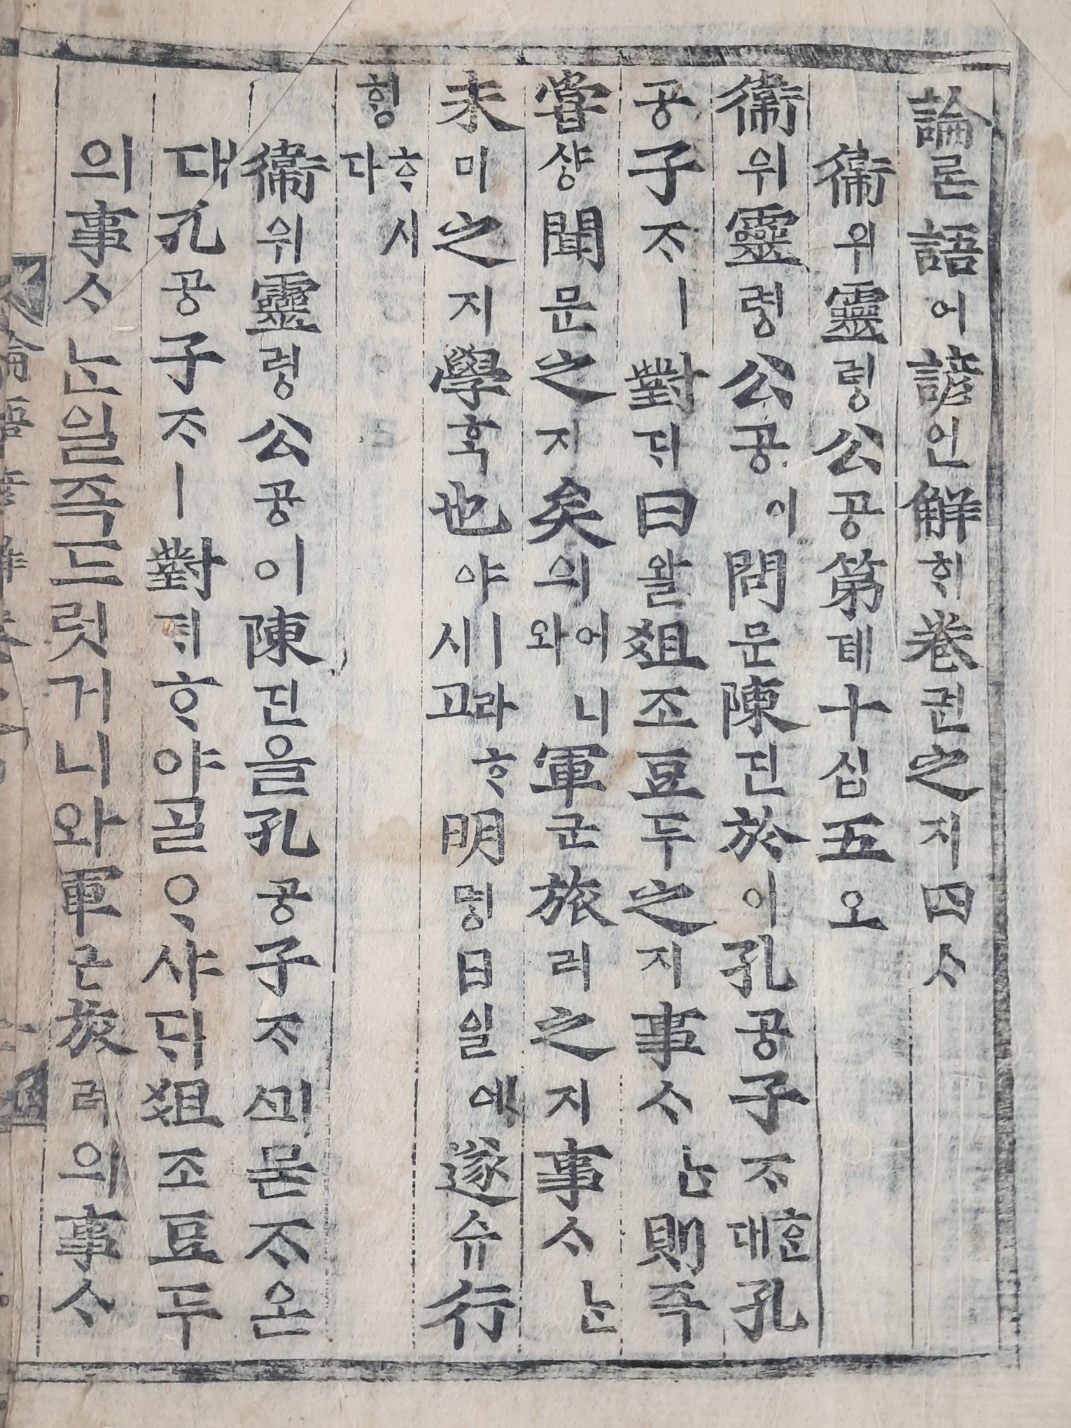 論론語어諺언解ᄒᆡ卷권之지四ᄉᆞ
衛위靈령公공第뎨十십五오
衛위靈령公공이問문陳딘於어孔공子ᄌᆞᄒᆞᆫ대孔
공子ᄌᆞㅣ對ᄃᆡ曰왈俎조豆두之지事ᄉᆞᄂᆞᆫ則즉
嘗샹聞문之지矣의어니와軍군旅려之지事ᄉᆞᄂᆞᆫ
未미之지學ᄒᆞᆨ也야ㅣ라ᄒᆞ시고明명日일에遂슈行
ᄒᆡᆼᄒᆞ시다
衛위靈령公공이陳딘을孔공子ᄌᆞᄭᅴ묻ᄌᆞ온
대孔공子ᄌᆞㅣ對ᄃᆡᄒᆞ야ᄀᆞᆯᄋᆞ샤ᄃᆡ俎조豆두
의事ᄉᆞᄂᆞᆫ일즉드럿거니와軍군旅려의事ᄉᆞ